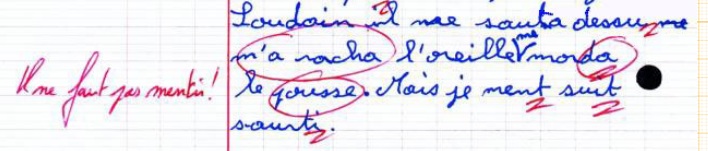 Soudain il me sauta dessu me
m'a racha l'oreille me morda
Il ne faut pas mentir! le gousse. Mais je ment suit
saurti.